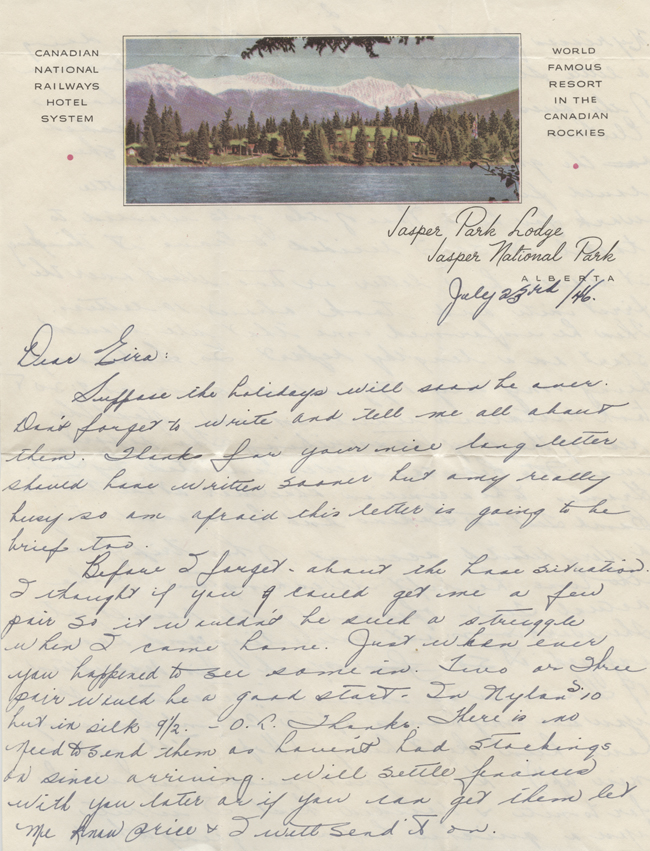 CANADIAN
NATIONAL
RAILWAYS
HOTEL
SYSTEM
WORLD
FAMOUS
RESORT
IN THE
CANADIAN
ROCKIES
Jasper Park Lodge
Jasper National Park
ALBERTA
July 23rd/46.
Dear Eira:
Suppose the holidays will soon be over.
Don't forget to write and tell me all about
them. Thanks for your nice long letter
should have written sooner but amy really
busy so am afraid this letter is going to be
brief too.
Before I forget - about the hose situation.
I thought if you could get me a few
pair so it wouldn't be such a struggle
when I came home. Just when ever
you happened to see some in. Two or three
pair would be a good start - In Nylons 10
but in silk 9½. - O.K. Thanks. There is no
need to send them as haven't had stockings
on since arriving. Will settle finances
with you later or if you can get them let
me know price & I will send it on.